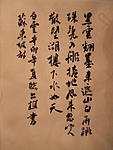 黑雲翻墨未遮山白雨跳
珠亂入船捲地風來忽吹
散望湖樓下水如天
書
蘇東坡